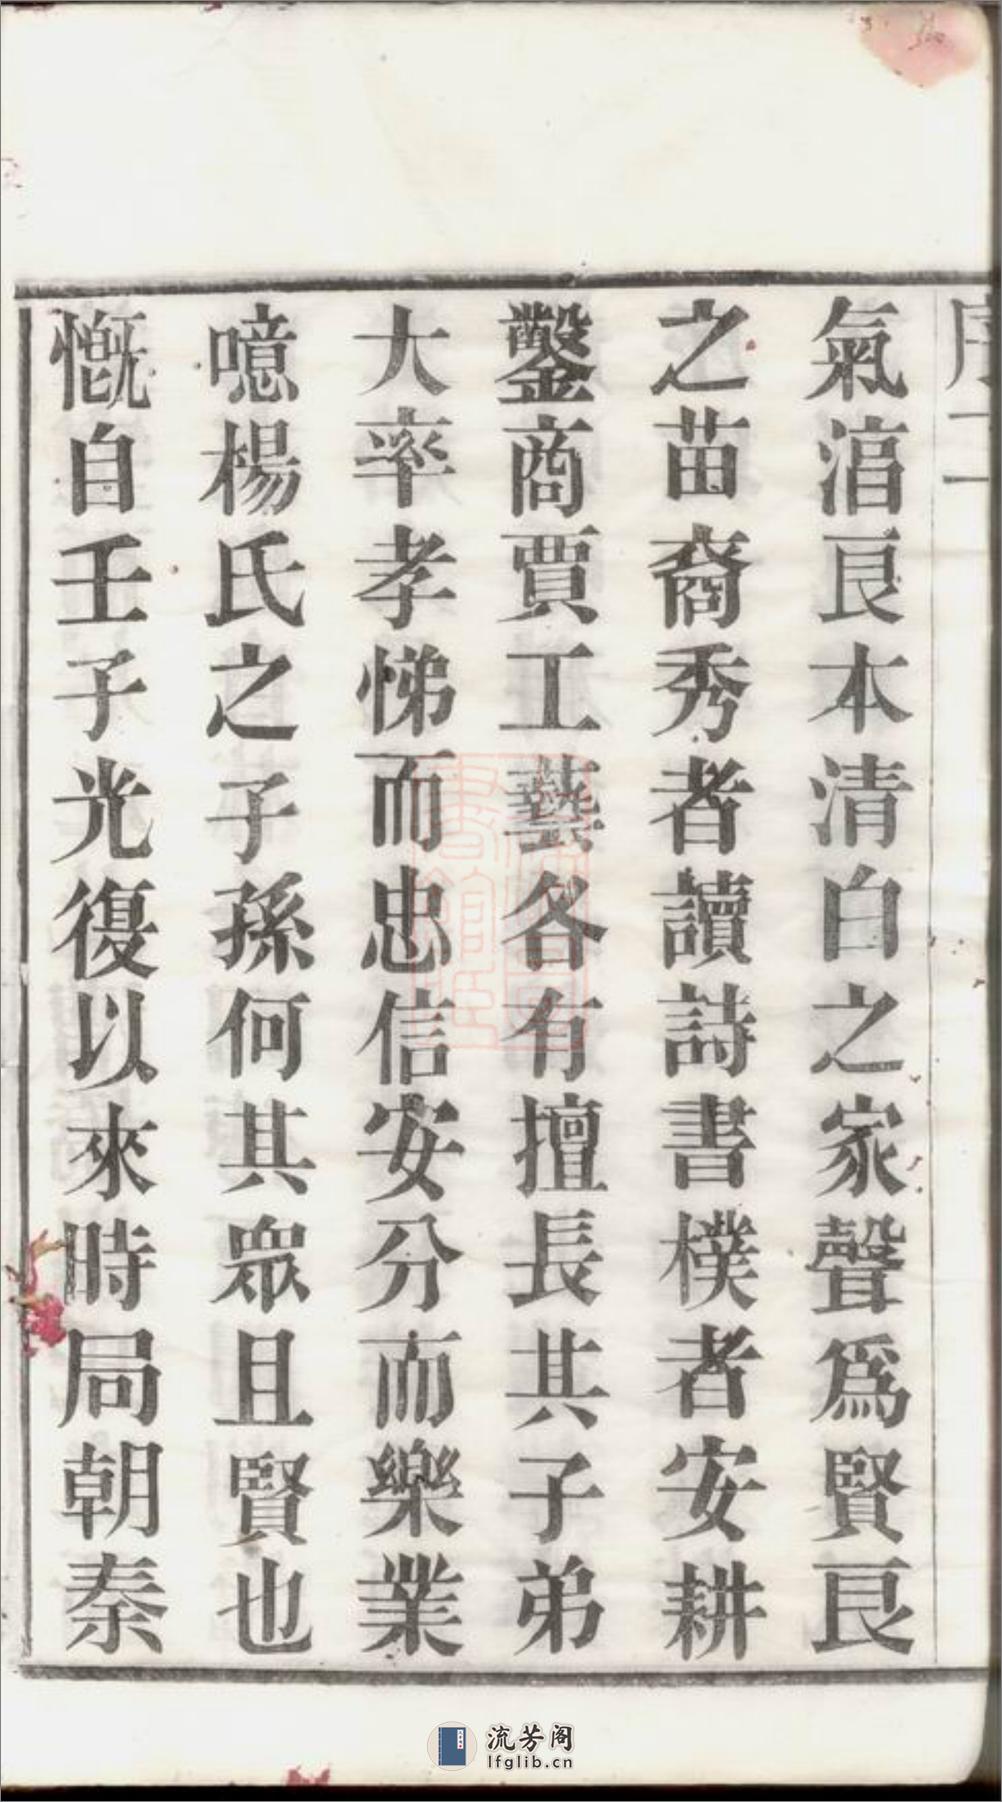 序二
氣涫良本清白之家聲爲賢良
之苗裔秀者讀詩書樸者安耕
鑿商賈工藝各有擅長其子弟
大率孝悌而忠信安分而樂業
噫楊氏之子孫何其眾且賢也
慨自壬子光復以來時局朝秦
流芳阁
lfglib.cn